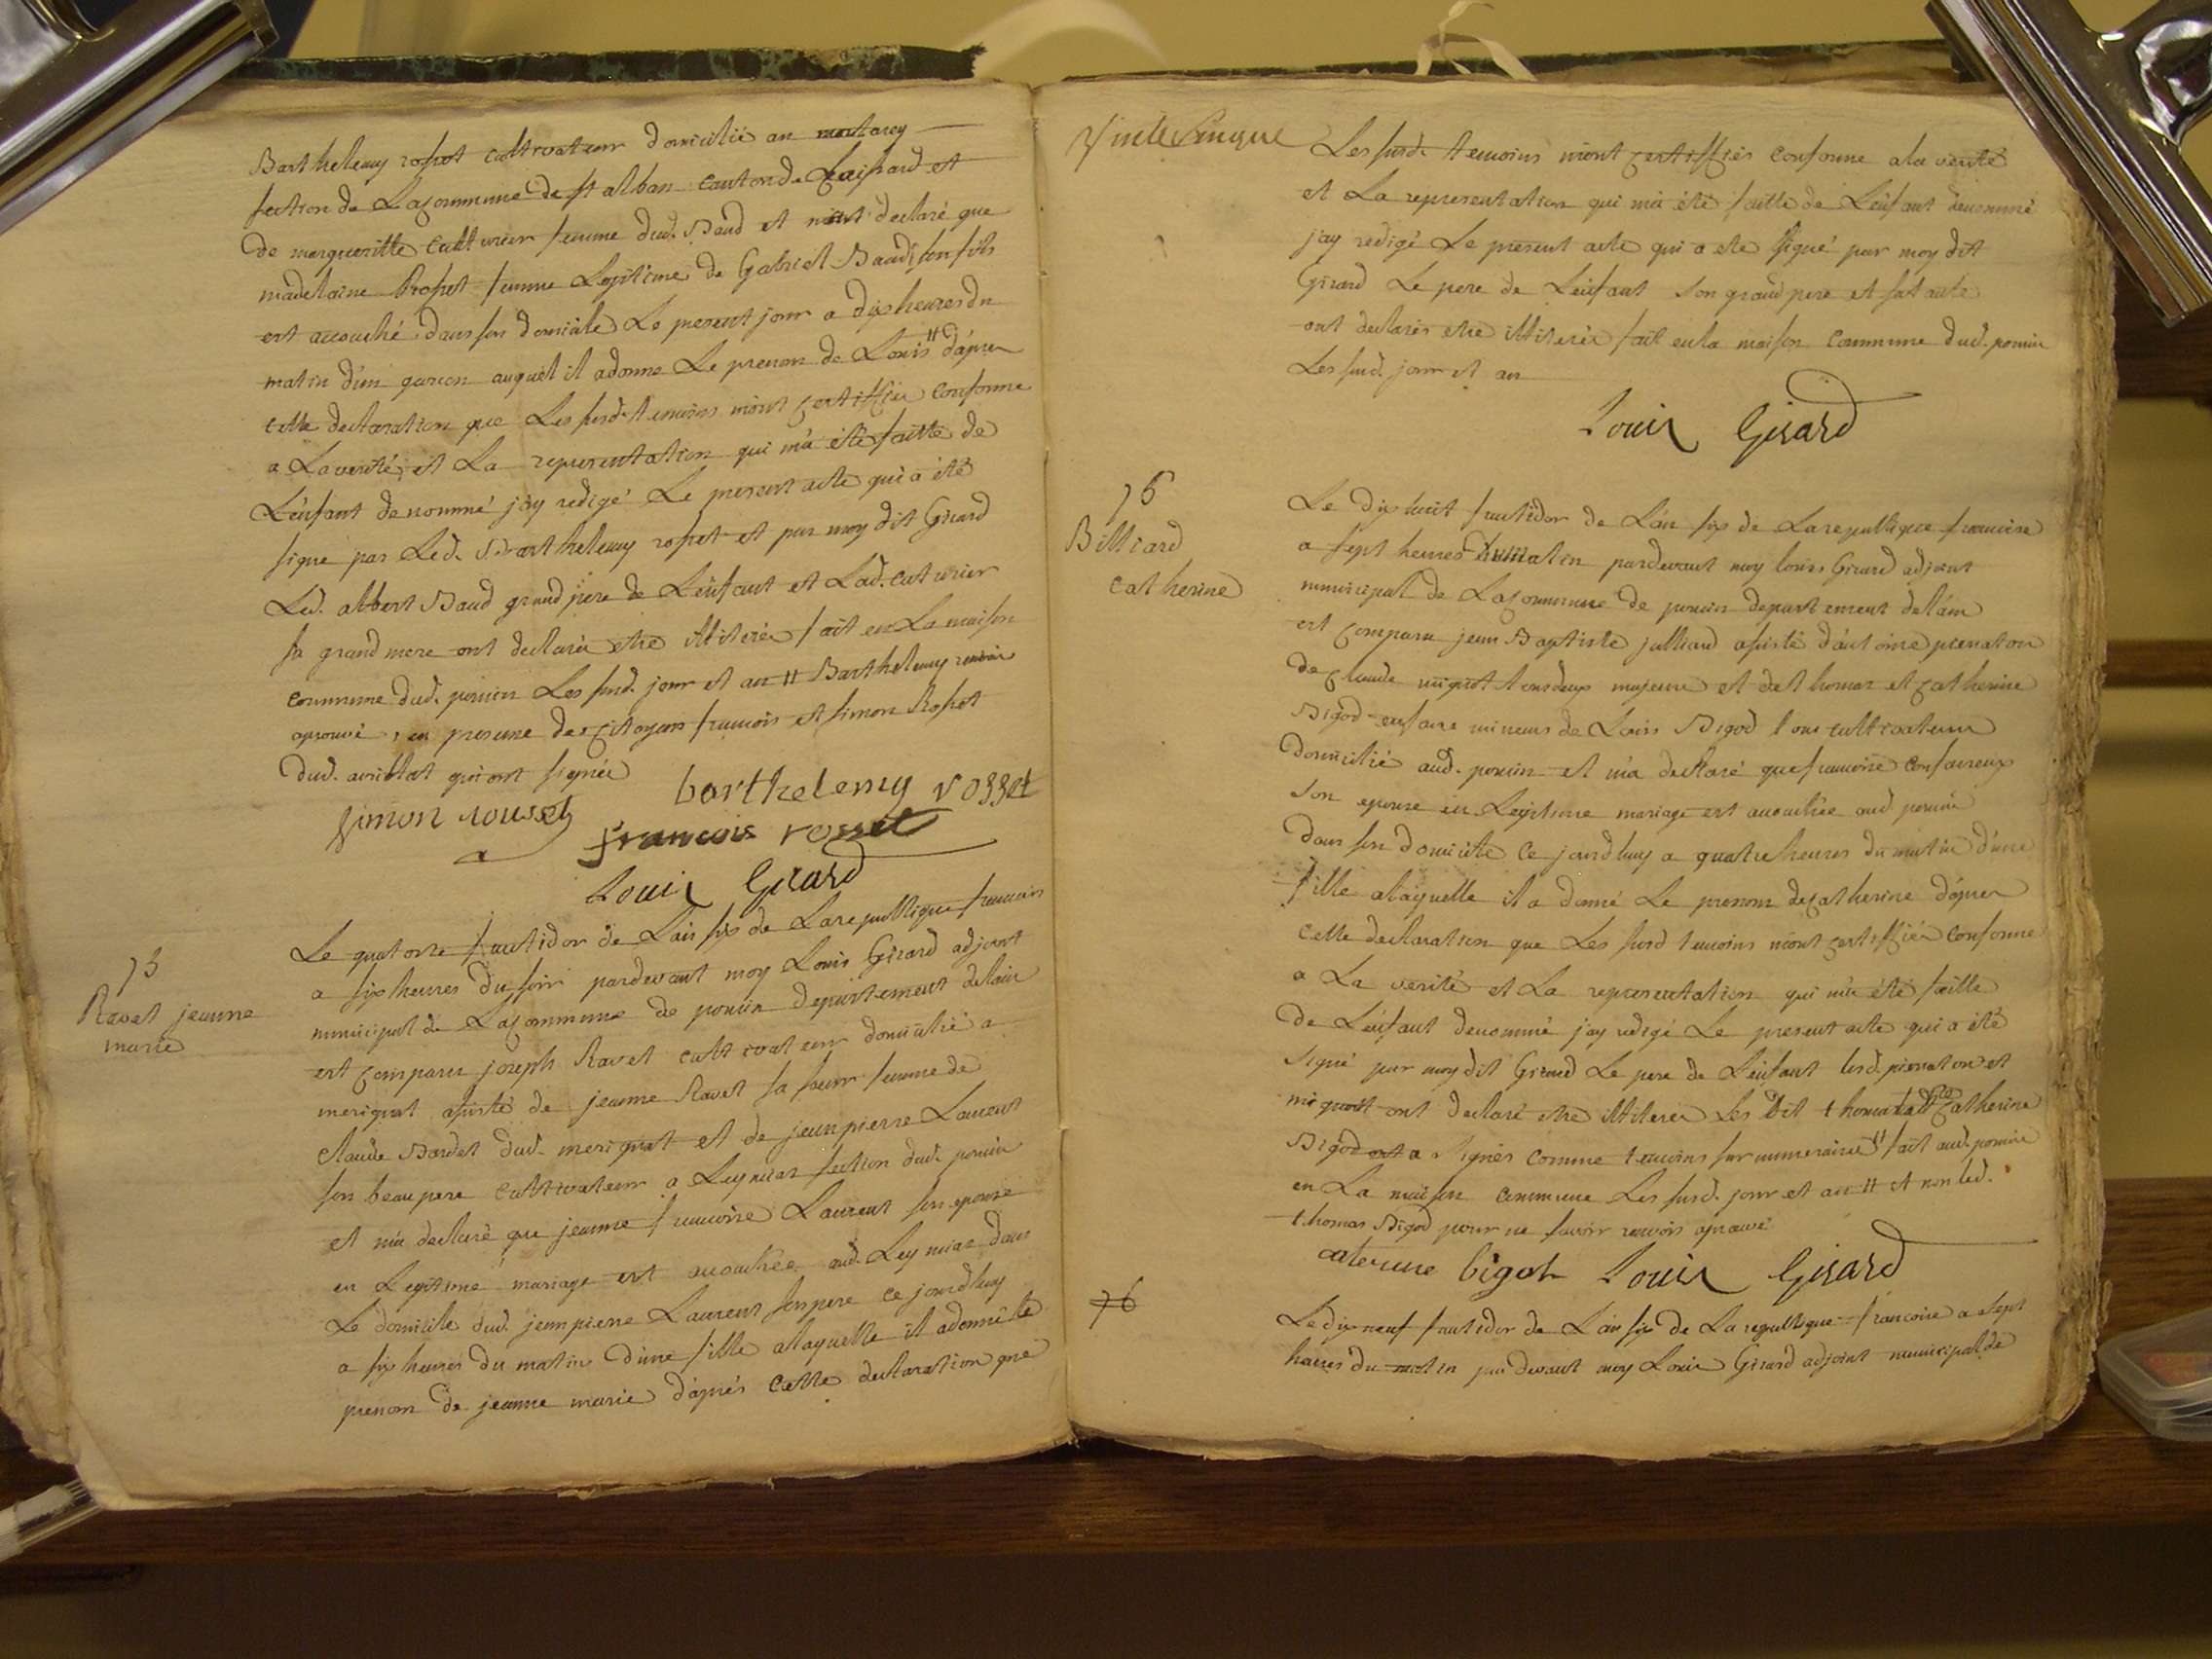 Barthelemy rosset cultivateur domicilié au montarey
section de La Commune de St alban canton de
de margueritte femme dud. Baud et m'ont declaré que
madelaine Rosset femme Legitime de Gabriel Baud son fils
est acouché dans son domicile Le present jour a dix heures du
matin d'un garcon auquel il a donne Le prenom de Louis // d'apres
cette declaration que Les susd. temoins m'ont certiffier conforme
a La verité, et La representation qui m'a été faitte de
L'enfant denommé j'ay redigé Le present acte qui a été
signe par Led. Barthelemy rosset et par moy dit Girard
Led. albert Baud grand pere de L'enfant et Lad.
sa grand mere ont declarés etre illiterés fait en La maison
commune dud. poncin Les susd. jour et an // Barthelemy
aprouvé, en presence des Citoyens francois et simon Rosset
dud. qui ont signés
simon rousset barthelemy rosset
francois rosset
Louis Girard
75
Ravet jeanne
marie
Le quatorze fructidor de L'an six de La republique francois
a six heures du soir pardevant moy Louis Girard adjoint
municipal de La Commune de poncin departement de lain
est comparu joseph Ravet cultivateur domicilié a
merignat assisté de jeanne Ravet sa soeur femme de
claude Bardet dud. merignat et de jean pierre Laurent
son beau pere cultivateur a Leymiaz section dud. poncin
et m'a declaré que jeanne francoise Laurent son epouse
en Legitime mariage est acouchée aud. Leymiaz dans
Le domicile dud. jean pierre Laurent son pere ce jourdhuy
a six heures du matin d'une fille a laquelle il a donné le
prenom de jeanne marie d'aprés cette declaration que
Vinte Sinque
Les susd. temoins m'ont certiffiés conforme a la verité
et La representation qui m'a été faitte de L'enfant denommé
j'ay redigé Le present acte qui a ete signé par moy dit
Girard Le pere de L'enfant son grand pere et sa tante
ont declarés etre illiterés fait en la maison commune dud. poncin
Les susd. jour et an
Louis Girard
76
Billiard
catherine
Le dix huit fructidor de L'an six de La republique francoise
a sept heures du matin pardevant moy louis Girard adjoint
municipal de La Commune de poncin departement de l'ain
est comparu jean Baptiste julliard assisté d'antoine
de claude tous deux majeurs et de thomas et catherine
Bigod enfans mineurs de Louis Bigod tous cultivateurs
domicilié aud. poncin et m'a declaré que francoise
son epouse en Legitime mariage est acouchée aud poncin
dans son domicile ce jourdhuy a quatre heures du matin d'une
fille a laquelle il a donné Le prenom de catherine d'apres
cette declaration que Les susd temoins m'ont certiffiér conforme
a La verité et La representation qui m'a été faitte
de L'enfant denommé j'ay redigé Le present acte qui a été
signé par moy dit Girard Le pere de L'enfant lesd. et
ont declaré etre illiterés Les dit thomas catherine
Bigod a signés comme temoins surnumeraire // fait aud. poncin
en La maison commune Les susd. jour et an // et non led.
thomas Bigod pour ne savoir renvois aprouvé
caterine bigot Louis Girard
76
Le dix neuf fructidor de L'an six de La republique francoise a sept
heures du matin pardevant moy Louis Girard adjoint municipal de